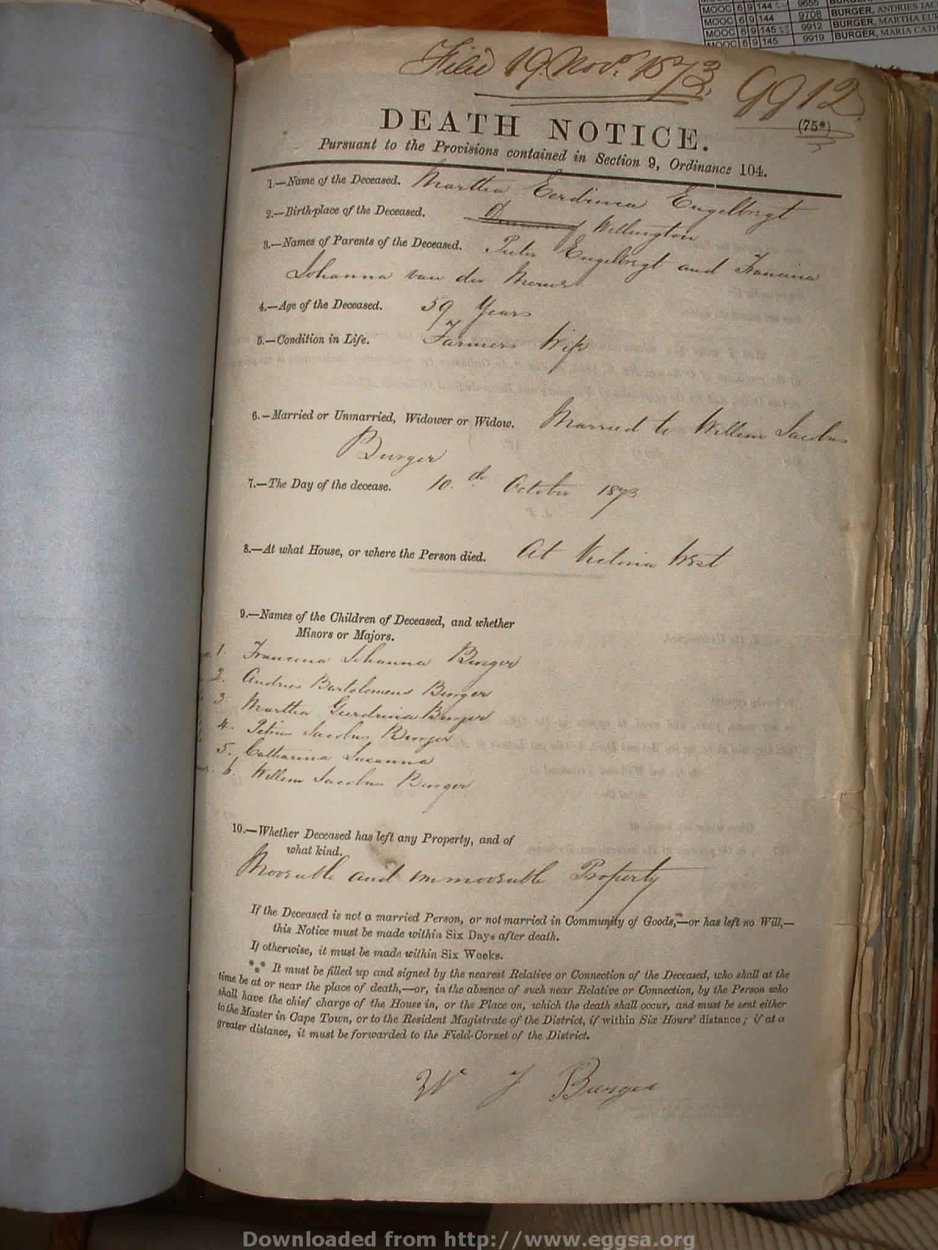 MOOC 6 9 144 9655 BURGER
MOOC 6 9 144 9708 BURGER, ANDRIES JAC
MOOC 6 9 145 9912 BURGER, MARTHA EUR
MOOC 6 9 145 9919 BURGER, MARIA CATH
Filed 19 Novr. 1873. 9912.
(75*)
DEATH NOTICE.
Pursuant to the Provisions contained in Section 9, Ordinance 104.
1.—Name of the Deceased. Martha Engelbregt
2.—Birth-place of the Deceased. Wellington
3.—Names of Parents of the Deceased. Pieter Engelbregt and Francina
Johanna van der Merwe
4.—Age of the Deceased. 59 Years
5.—Condition in Life. Farmers Wife
6.—Married or Unmarried, Widower or Widow. Married to Willem Jacobus
Burger
7.—The Day of the decease. 10.th October 1873
8.—At what House, or where the Person died. At Victoria West
9.—Names of the Children of Deceased, and whether
Minors or Majors.
1. Francina Johanna Burger
2. Andries Bartolomeus Burger
3. Martha Geerdruica Burger
4. Petrus Jacobus Burger
5. Catharina Susanna
6. Willem Jacobus Burger
10.—Whether Deceased has left any Property, and of
what kind.
Moovable and immoovable Property
If the Deceased is not a married Person, or not married in Community of Goods,—or has left no Will,—
this Notice must be made within Six Days after death.
If otherwise, it must be made within Six Weeks.
*** It must be filled up and signed by the nearest Relative or Connection of the Deceased, who shall at the
time be at or near the place of death,—or, in the absence of such near Relative or Connection, by the Person who
shall have the chief charge of the House in, or the Place on, which the death shall occur, and must be sent either
to the Master in Cape Town, or to the Resident Magistrate of the District, if within Six Hours' distance; if at a
greater distance, it must be forwarded to the Field-Cornet of the District.
W J Burger
Downloaded from http://www.eggsa.org